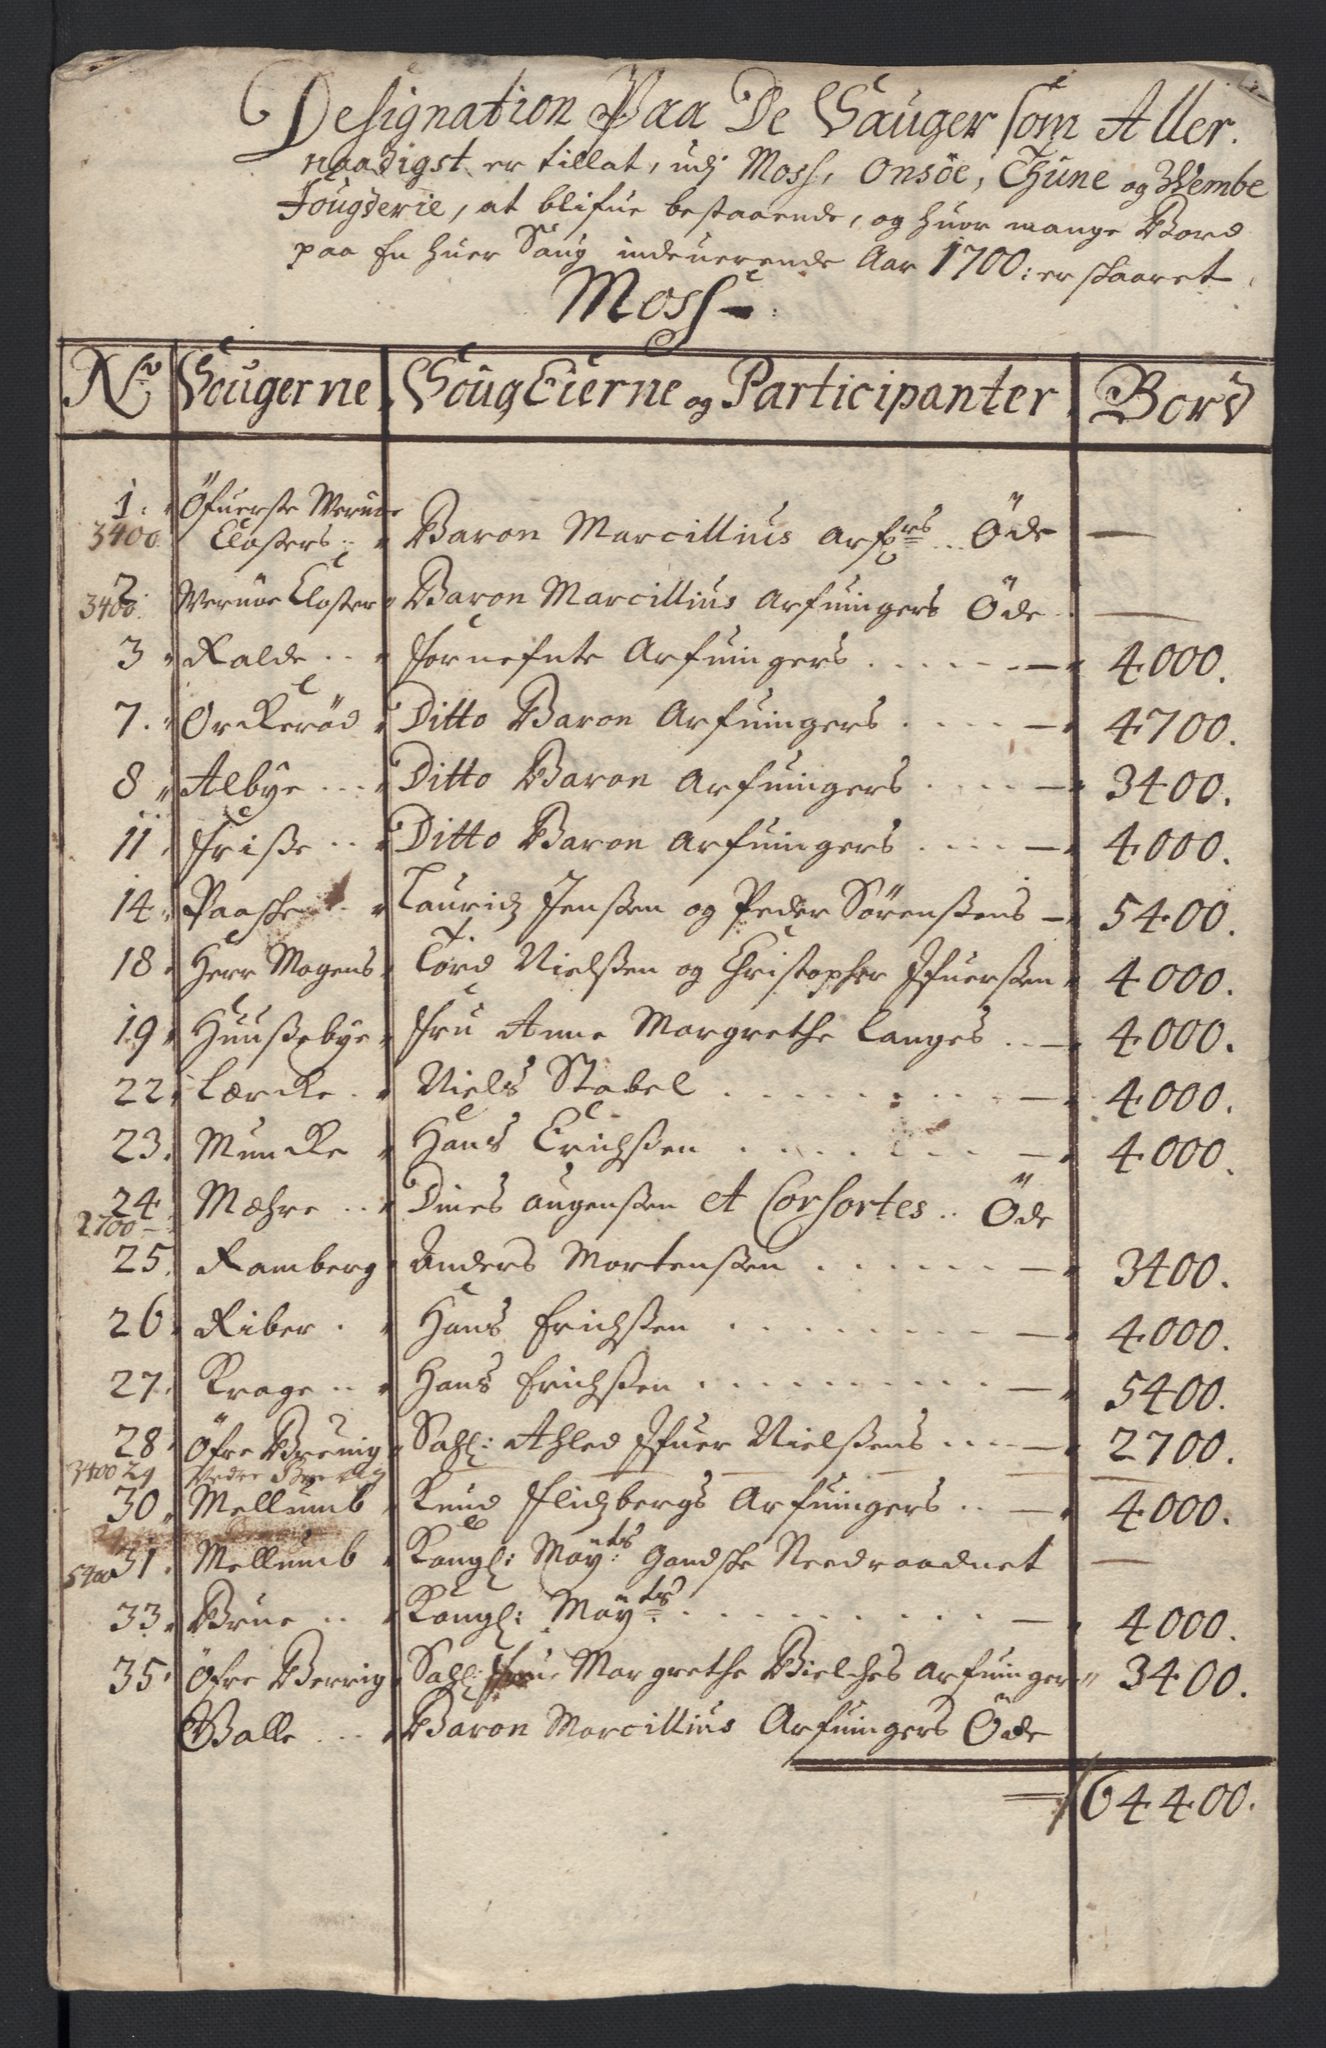 Designation Paa De Sauger som Aller-
naadigst er tillat, udj Moss, Onsöe, Thune og Wembe
Fougderie, at blifue bestaaende, og huor mange Bord
paa En huer Saug indeuerende Aar 1700: er skaaret
Moss
No Sougerne SougEierne og Participanter Bord
1. Öfuerste Werne
3400 Closters.. Baron Marcillius Arfrs.. Öde —
2 Wernöe Closter Baron Marcillius Arfuingers Öde —
3400.
3 Kalde... fornefnte Arfuingers . . . . . 4000.
7. Orckeröd Ditto Baron Arfuingers . . . . 4700.
8 Albye ... Ditto Baron Arfuingers . . . . 3400.
11 Friße .. Ditto Baron Arfuingers . . . . 4000.
14 Paaske .. Lauridz Jenßen og Peder Sörenßens 5400.
18 Herr Mogens Tord Nielßen og Christopher Ifuerßen 4000.
19 Huußebye fru Anne Margrethe Langes .. 4000.
22 Lærcke . Niels Stabel . . . . . . 4000.
23. Muncke Hans Erichßen . . . . . . 4000.
24 Mæhre .. Dines Augenßen et Consortes.. Öde
2700
25. Ramberg Anders Mortenßen . . . . . . 3400.
26 Riber . Hans Erichßen . . . . . . . . 4000.
27. Krage .. Hans Erichßen . . . . . . . . . 5400.
28 Öfre Breuig Sahl: Ahled Ifuer Nielßens .... 2700.
3400 29 Nedre Breuig —
30. Mellumb Knud Flidzbergs Arfuingers .. 4000.
31. Mellumb Kongl: Mayts: Gandske Needraadnet —
5400
33. Brue .. Kongl: Mayts . . . . . . . . . . 4000.
35. Öfre Berrig Sahl: frue Margrethe Bielches Arfuinger 3400.
Balle ... Baron Marcillius Arfuingers Öde
64400.